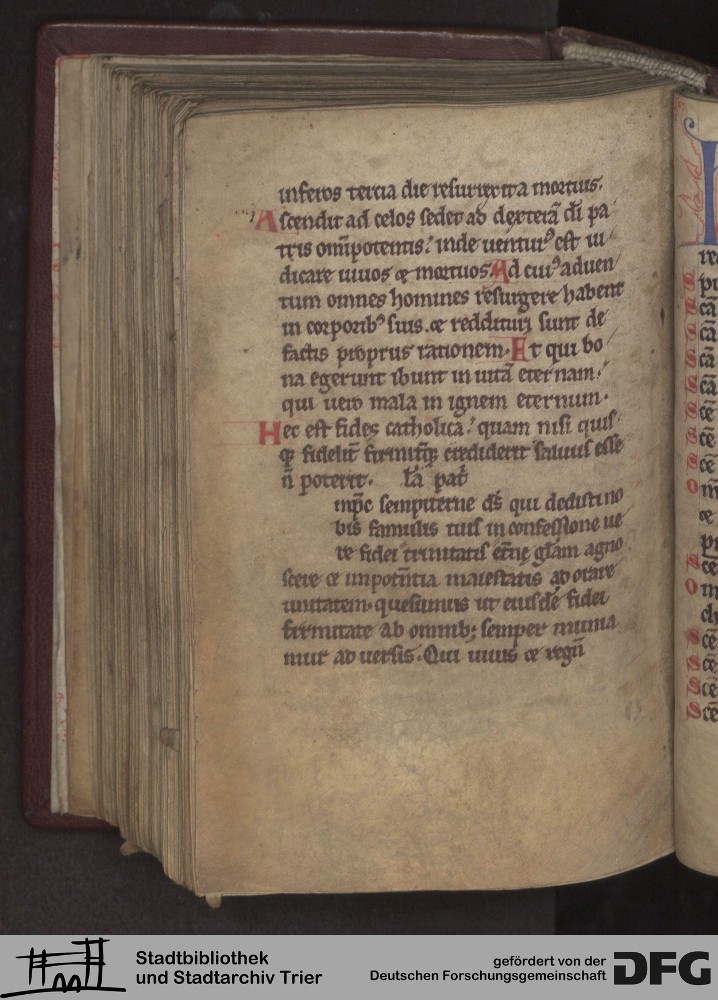 inferos tercia die resurrexit a mortuis.
Ascendit ad celos sedet ad dexterā dī pa
tris omīpotentis. inde uentur⁹ est iu
dicare uiuos ⁊ mortuos. Ad cui⁹ aduen
tum omnes homines resurgere habent
in corporib⁹ suis. ⁊ reddituri sunt de
factis propriis rationem. Et qui bo
na egerunt ibunt in uitā eternam.
qui uero mala in ignem eternum.
Hec est fides catholica. quam nisi quis
qꝫ fidelit̄ firmit̄qꝫ crediderit saluus esse
ñ poterit. Gl̄a pat̄
mp̄c sempiterne ds̄ qui dedisti no
bis famulis tuis in confessione ue
re fidei trinitatis et̄ne gl̄am agno
scere ⁊ in potēntia maiestatis adorare
unitatem. quesumus ut eiusdē fidei
firmitate ab omnibꝫ semper munia
mur aduersis. Qui uiuis ⁊ regn̄
Stadtbibliothek
und Stadtarchiv Trier
gefördert von der
Deutschen Forschungsgemeinschaft
DFG